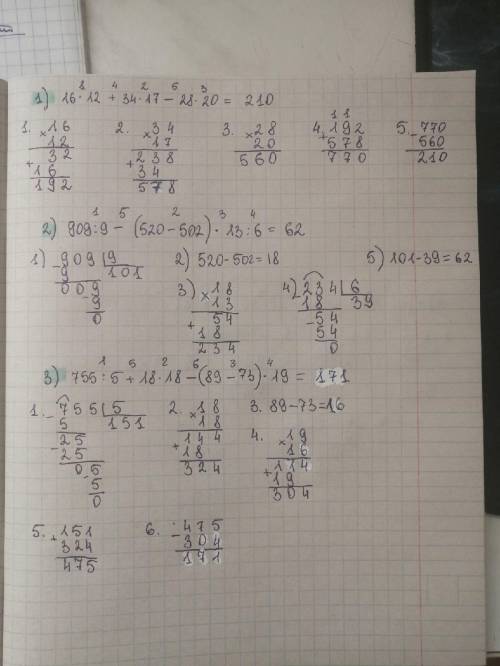 1) 16·12 + 34·17 - 28·20 = 210
1 4 2 5 3
1. ×16 2. ×34 3. ×28 4. +192 5. -770
12 17 20 578 560
+32 +238 560 770 210
16 34
192 578
2) 909:9 - (520-502)·13:6 = 62
1 5 2 3 4
1) -909|9 2) 520-502=18 5) 101-39=62
9 101
009
-9
0
3) ×18 4) 234|6
13 18 39
+54 -54
18 54
234 0
3) 755:5 + 18·18 - (89-73)·19 = 171
1 5 2 6 3 4
1. -755|5 2. ×18 3. 89-73=16
5 151 18
-25 +144
25 18
05 324
-5
0
4. ×19
16
+114
19
304
5. +151 6. -475
324 304
475 171